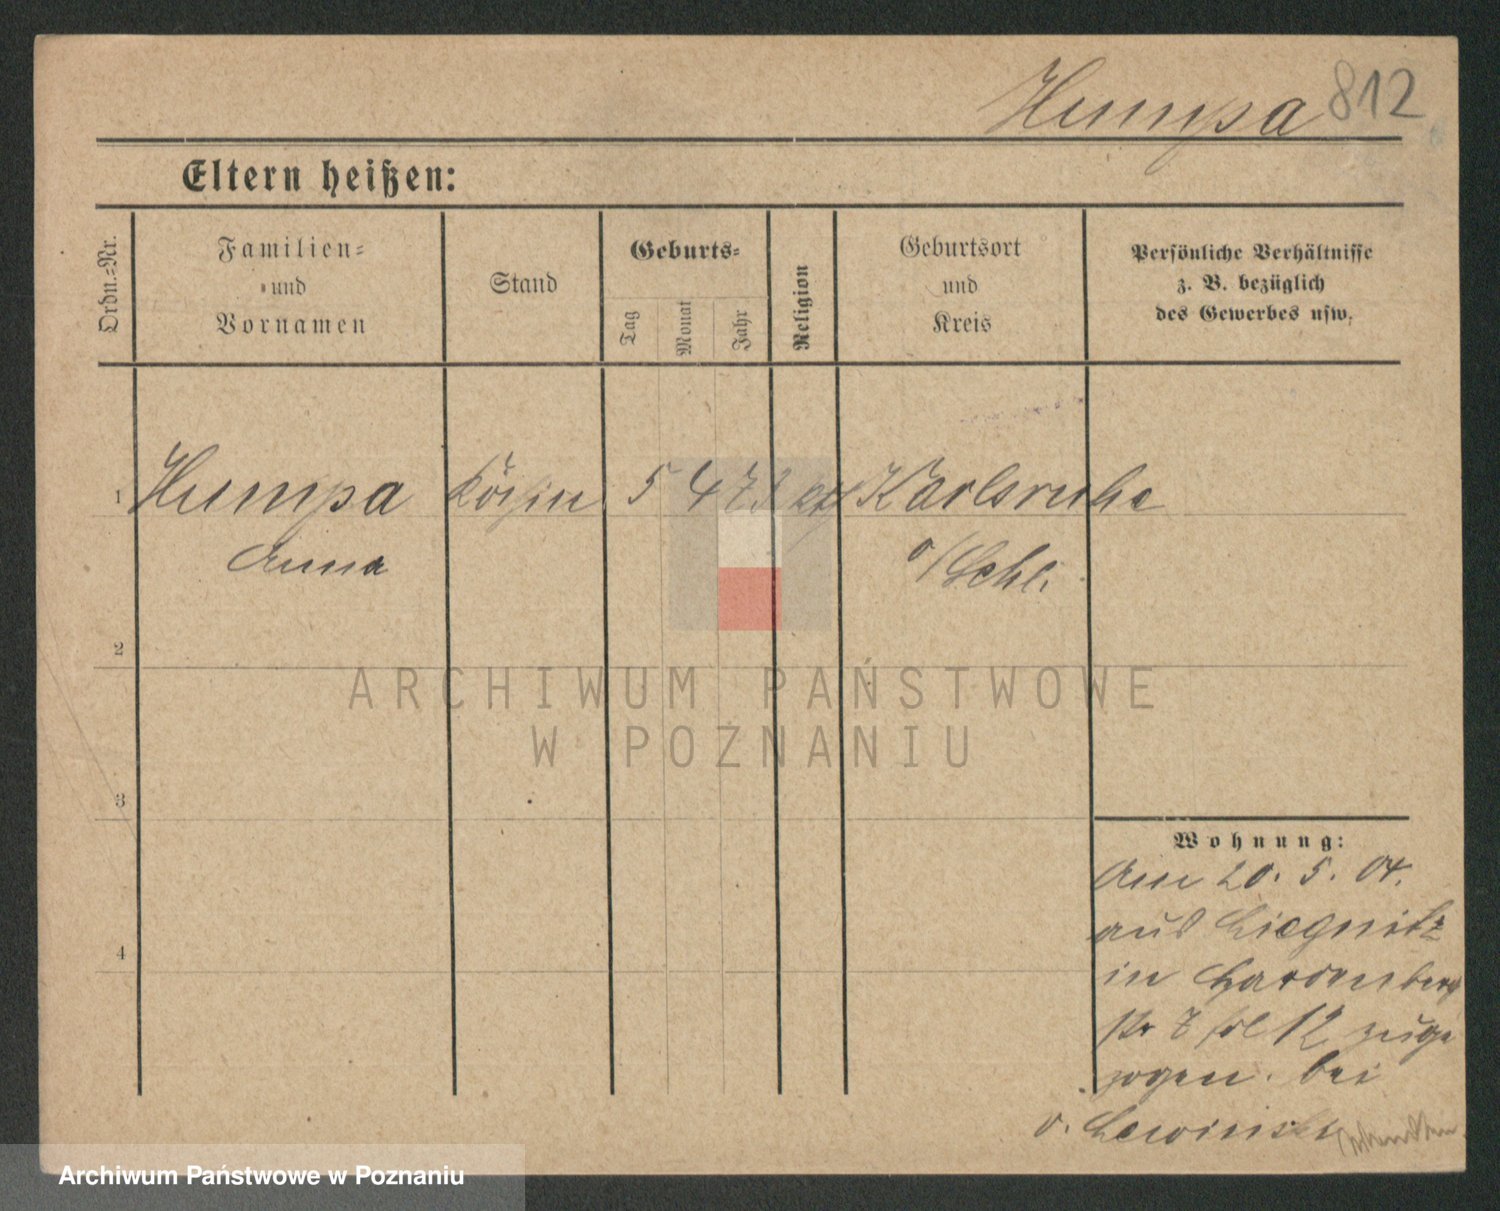 Humpa 812
Eltern heißen:
Ordn.-Nr.
Familien-
und
Vornamen
Stand
Geburts-
Tag
Monat
Jahr
Religion
Geburtsort
und
Kreis
Persönliche Verhältnisse
z. B. bezüglich
des Gewerbes usw.
1 Humpa Köchin 5 4 73 kth Karlsruhe
Anna o/Schl.
2
ARCHIWUM PAŃSTWOWE
W POZNANIU
3
Wohnung:
Am 20. 5. 04.
aus Liegnitz
4
in Hardenberg
str 7 12 zuge
zogen. bei
v. Lewinski
Archiwum Państwowe w Poznaniu